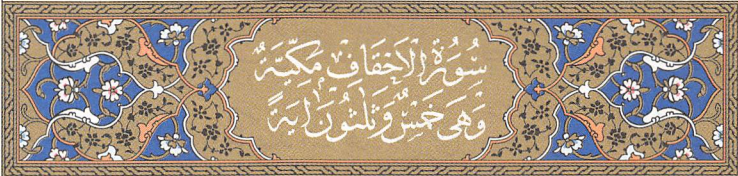 سُورَةُ الْاَحْقَافِ مَكِّيَّةٌ
وَهِىَ خَمْسٌ وَثَلٰثُونَ اٰيَةً